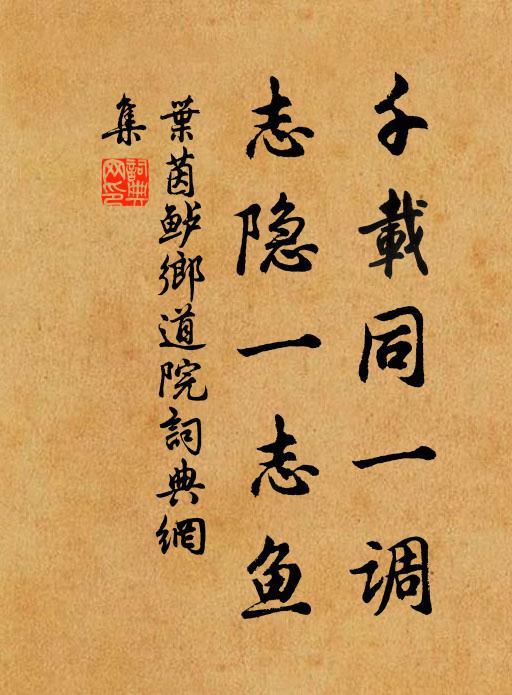 千載同一调
志隐一志鱼
葉茵鲈鄉道院詞典網
集
詞典网印